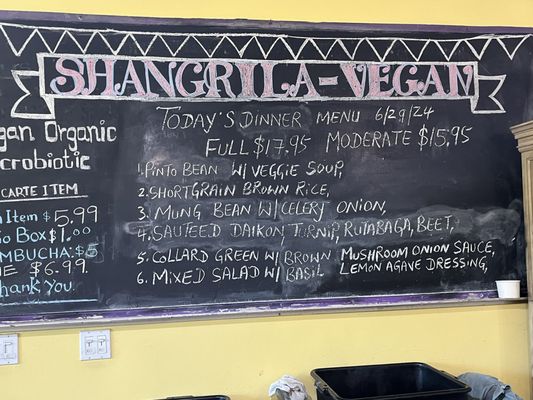 SHANGRILA-VEGAN
TODAY'S DINNER MENU 6/29/24
FULL $17.95 MODERATE $15.95
1. PINTO BEAN W/ VEGGIE SOUP,
2. SHORTGRAIN BROWN RICE,
3. MUNG BEAN W/ CELERY ONION,
4. SAUTEED DAIKON, TURNIP, RUTABAGA, BEET,
5. COLLARD GREEN W/ BROWN MUSHROOM ONION SAUCE,
6. MIXED SALAD W/ BASIL LEMON AGAVE DRESSING,
Organic
CARTE ITEM
Item $5.99
Box $1.00
$5
$6.99
Thank You.